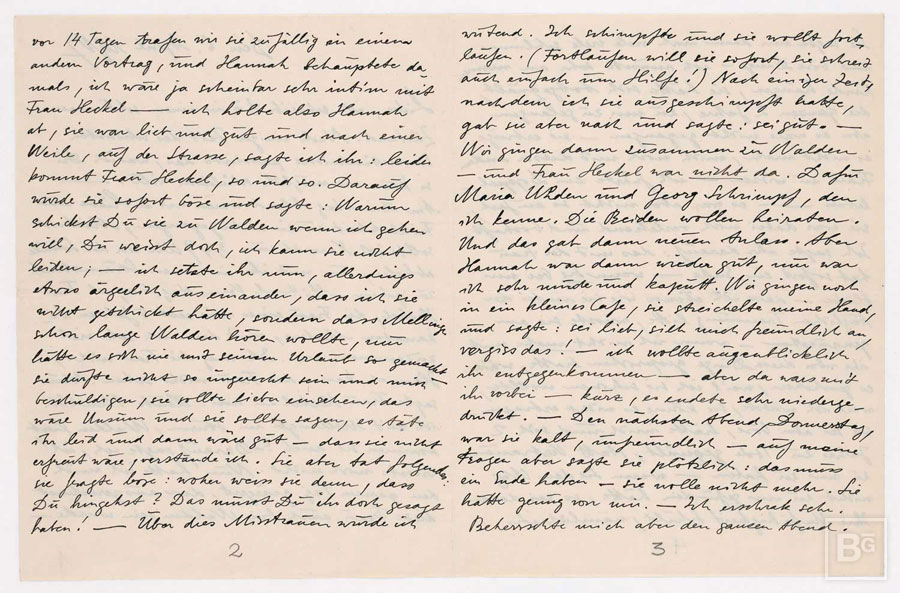 vor 14 Tagen trafen wir sie zufällig in einem
andern Vortrag, und Hannah behauptete da
mals, ich wäre ja scheinbar sehr intim mit
Frau Heckel — ich holte also Hannah
ab, sie war lieb und gut und nach einer
Weile, auf der Strasse, sagte ich ihr: leider
kommt Frau Heckel, so und so. Darauf
wurde sie sofort böse und sagte: Warum
schickst Du sie zu Walden wenn ich gehen
will, Du weisst doch, ich kann sie nicht
leiden; — ich setzte ihr nun, allerdings
etwas ärgerlich auseinander, dass ich sie
nicht geschickt hätte, sondern dass
schon lange Walden hören wollte, nun
hätte es sich nie mit seinem Urlaub so gemacht
sie dürfte nicht so ungerecht sein und mich
beschuldigen, sie sollte lieber einsehen, das
wäre Unsinn und sie sollte sagen, es täte
ihr leid und dann wärs gut — dass sie nicht
erfreut wäre, verstände ich. Sie aber tat folgendes:
sie fragte böse: woher weiss sie denn, dass
Du hingehst? Das musst Du ihr doch gesagt
haben! — Über dies Misstrauen wurde ich
2
wütend. Ich schimpfte und sie wollt fort-
laufen. (Fortlaufen will sie sofort, sie schreit
auch einfach um Hilfe!) Nach einiger Zeit,
nachdem ich sie ausgeschimpft hatte,
gab sie aber nach und sagte: sei gut. —
Wir gingen dann zusammen zu Walden
— und Frau Heckel war nicht da. Dafür
Maria Uhden und Georg Schrimpf, den
ich kenne. Die Beiden wollen heiraten.
Und das gab dann neuen Anlass. Aber
Hannah war dann wieder gut, nur war
ich sehr müde und kaputt. Wir gingen noch
in ein kleines Café, sie streichelte meine Hand,
und sagte: sei lieb, sieh mich freundlich an,
vergiss das! — ich wollte augenblicklich
ihr entgegenkommen — aber da wars mit
ihr vorbei — kurz, es endete sehr niederge-
drückt. — Den nächsten Abend, Donnerstag,
war sie kalt, unfreundlich — auf meine
Fragen aber sagte sie plötzlich: das muss
ein Ende haben — sie wolle nicht mehr. Sie
hätte genug von mir. — Ich erschrak sehr.
Beherrschte mich aber den ganzen Abend.
3
BG